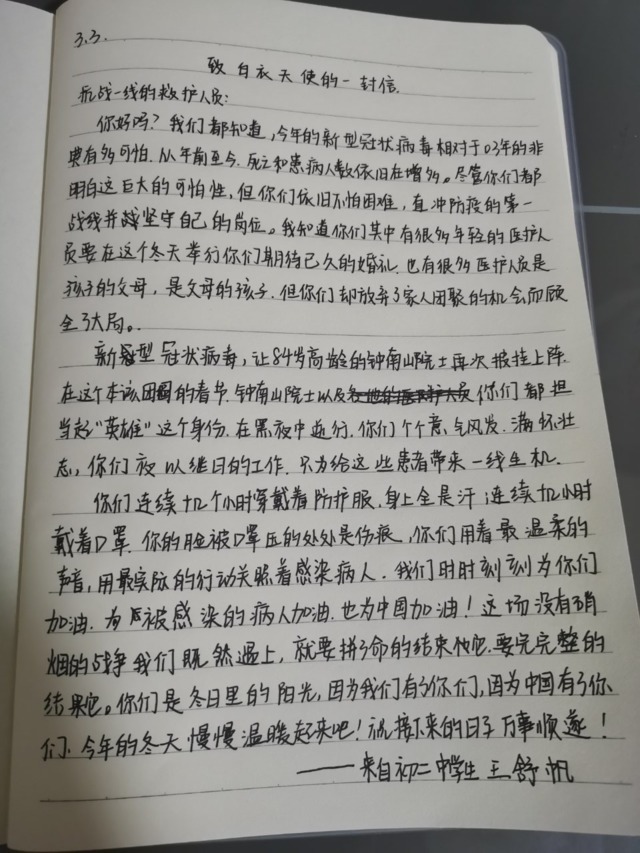 3.3.
致白衣天使的一封信.
抗战一线的救护人员:
你好吗？我们都知道,今年的新型冠状病毒相对于03年的非
典有多可怕.从年前至今.死亡和患病人数依旧在增多。尽管你们都
明白这巨大的可怕性,但你们依旧不怕困难,直冲防疫的第一
战线并坚守自己的岗位。我知道你们其中有很多年轻的医护人
员要在这个冬天举行你们期待已久的婚礼.也有很多医护人员是
孩子的父母,是父母的孩子.但你们却放弃了家人团聚的机会而顾
全了大局。
新型冠状病毒,让84岁高龄的钟南山院士再次披挂上阵.
在这个本该团圆的春节.钟南山院士以及你们都担
当起"英雄"这个身份.在黑夜中逆行.你们个个意气风发.满怀壮
志,你们夜以继日的工作.只为给这些患者带来一线生机.
你们连续十几个小时穿戴着防护服.身上全是汗;连续十几小时
戴着口罩.你的脸被口罩压的处处是伤痕,你们用着最温柔的
声音,用最实际的行动关照着感染病人.我们时时刻刻为你们
加油.为被感染的病人加油.也为中国加油！这场没有硝
烟的战争我们既然遇上,就要拼了命的结束他.要完完整整的
结束它。你们是冬日里的阳光,因为我们有了你们,因为中国有了你
们.今年的冬天慢慢温暖起来吧！祝接下来的日子万事顺遂！
——来自初二中学生王舒帆